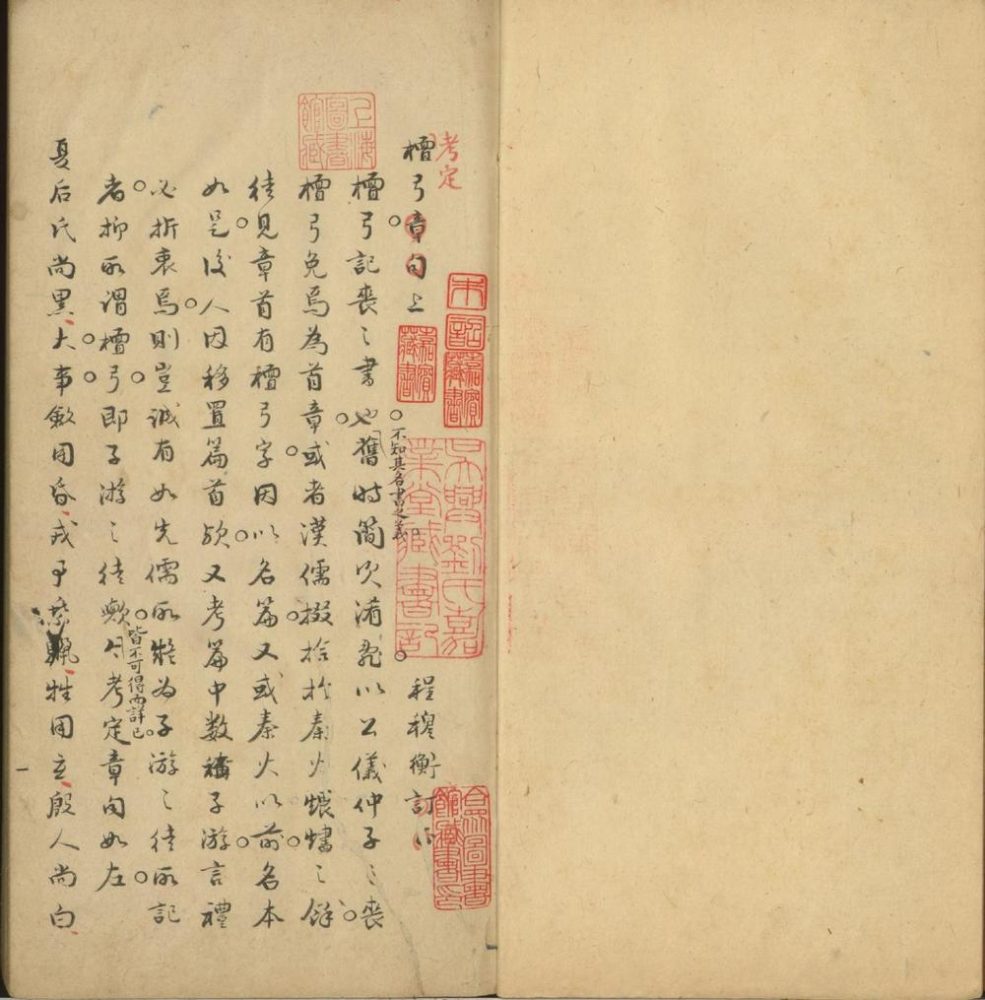 考定
檀弓章句上 程穆衡訂正
檀弓記喪之書也舊時簡次淆亂以公儀仲子之喪
不知其名書之義
檀弓免焉為首章或者漢儒掇拾於秦火煨燼之餘
徒見章首有檀弓字因以名篇又或秦火以前名本
如是後人因移置篇首歟又考篇中数稱子游言禮
必折衷焉則豈誠有如先儒所疑為子游之徒所記
者抑所謂檀弓即子游之徒歟今考定章句如左
皆不可得而詳已
夏后氏尚黑大事斂用昏戎事乘驪牲用玄殷人尚白
上海圖書館藏
嘉賓藏書
嘉賓藏書
吳興劉氏嘉業堂藏書記